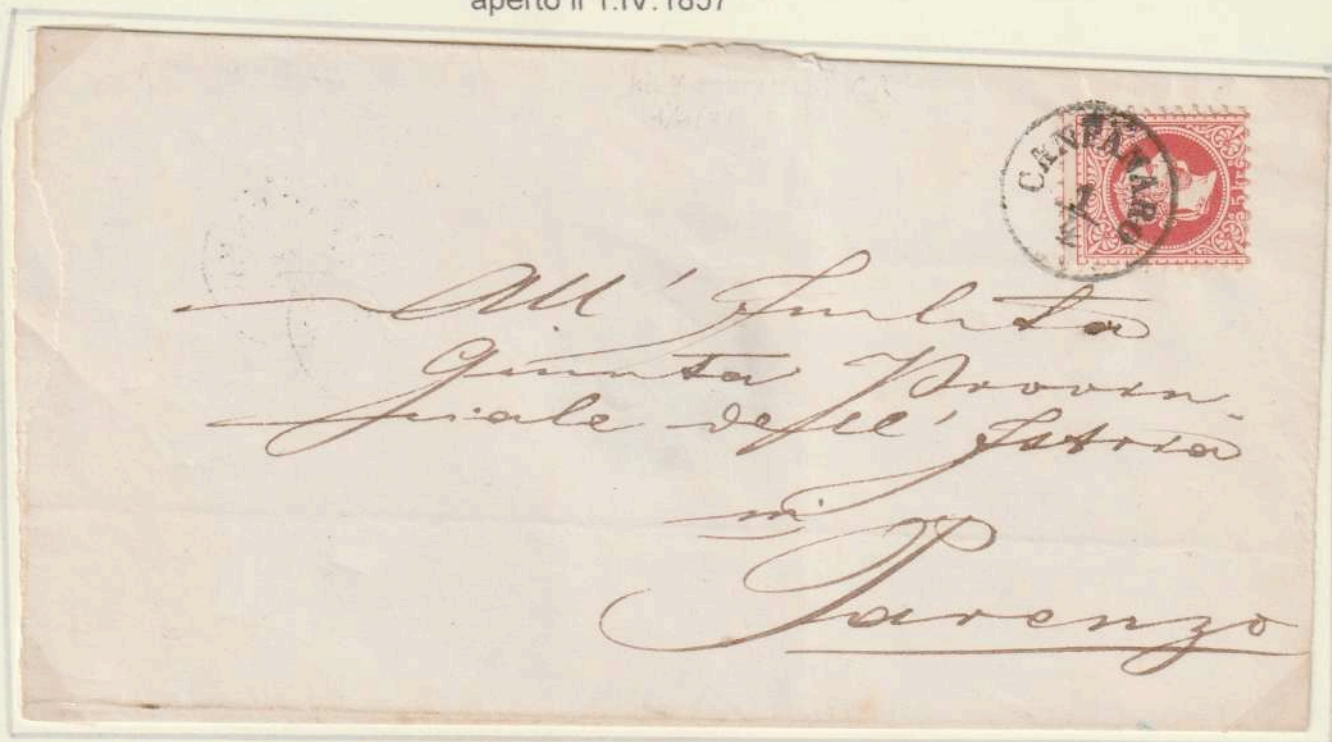 aperto il 1.IV.1857
CANFANARO
5 kr
All' Inclita
Giunta Provin-
ziale dell' Istria
in
Parenzo